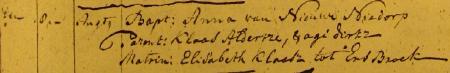 8en Augt; Bapt: Anna van Nieuwe Niedorp
Parent: Klaas Albertze, Jagi dirkz
Matrin: Elisabeth Klaasz tot Ens Broek